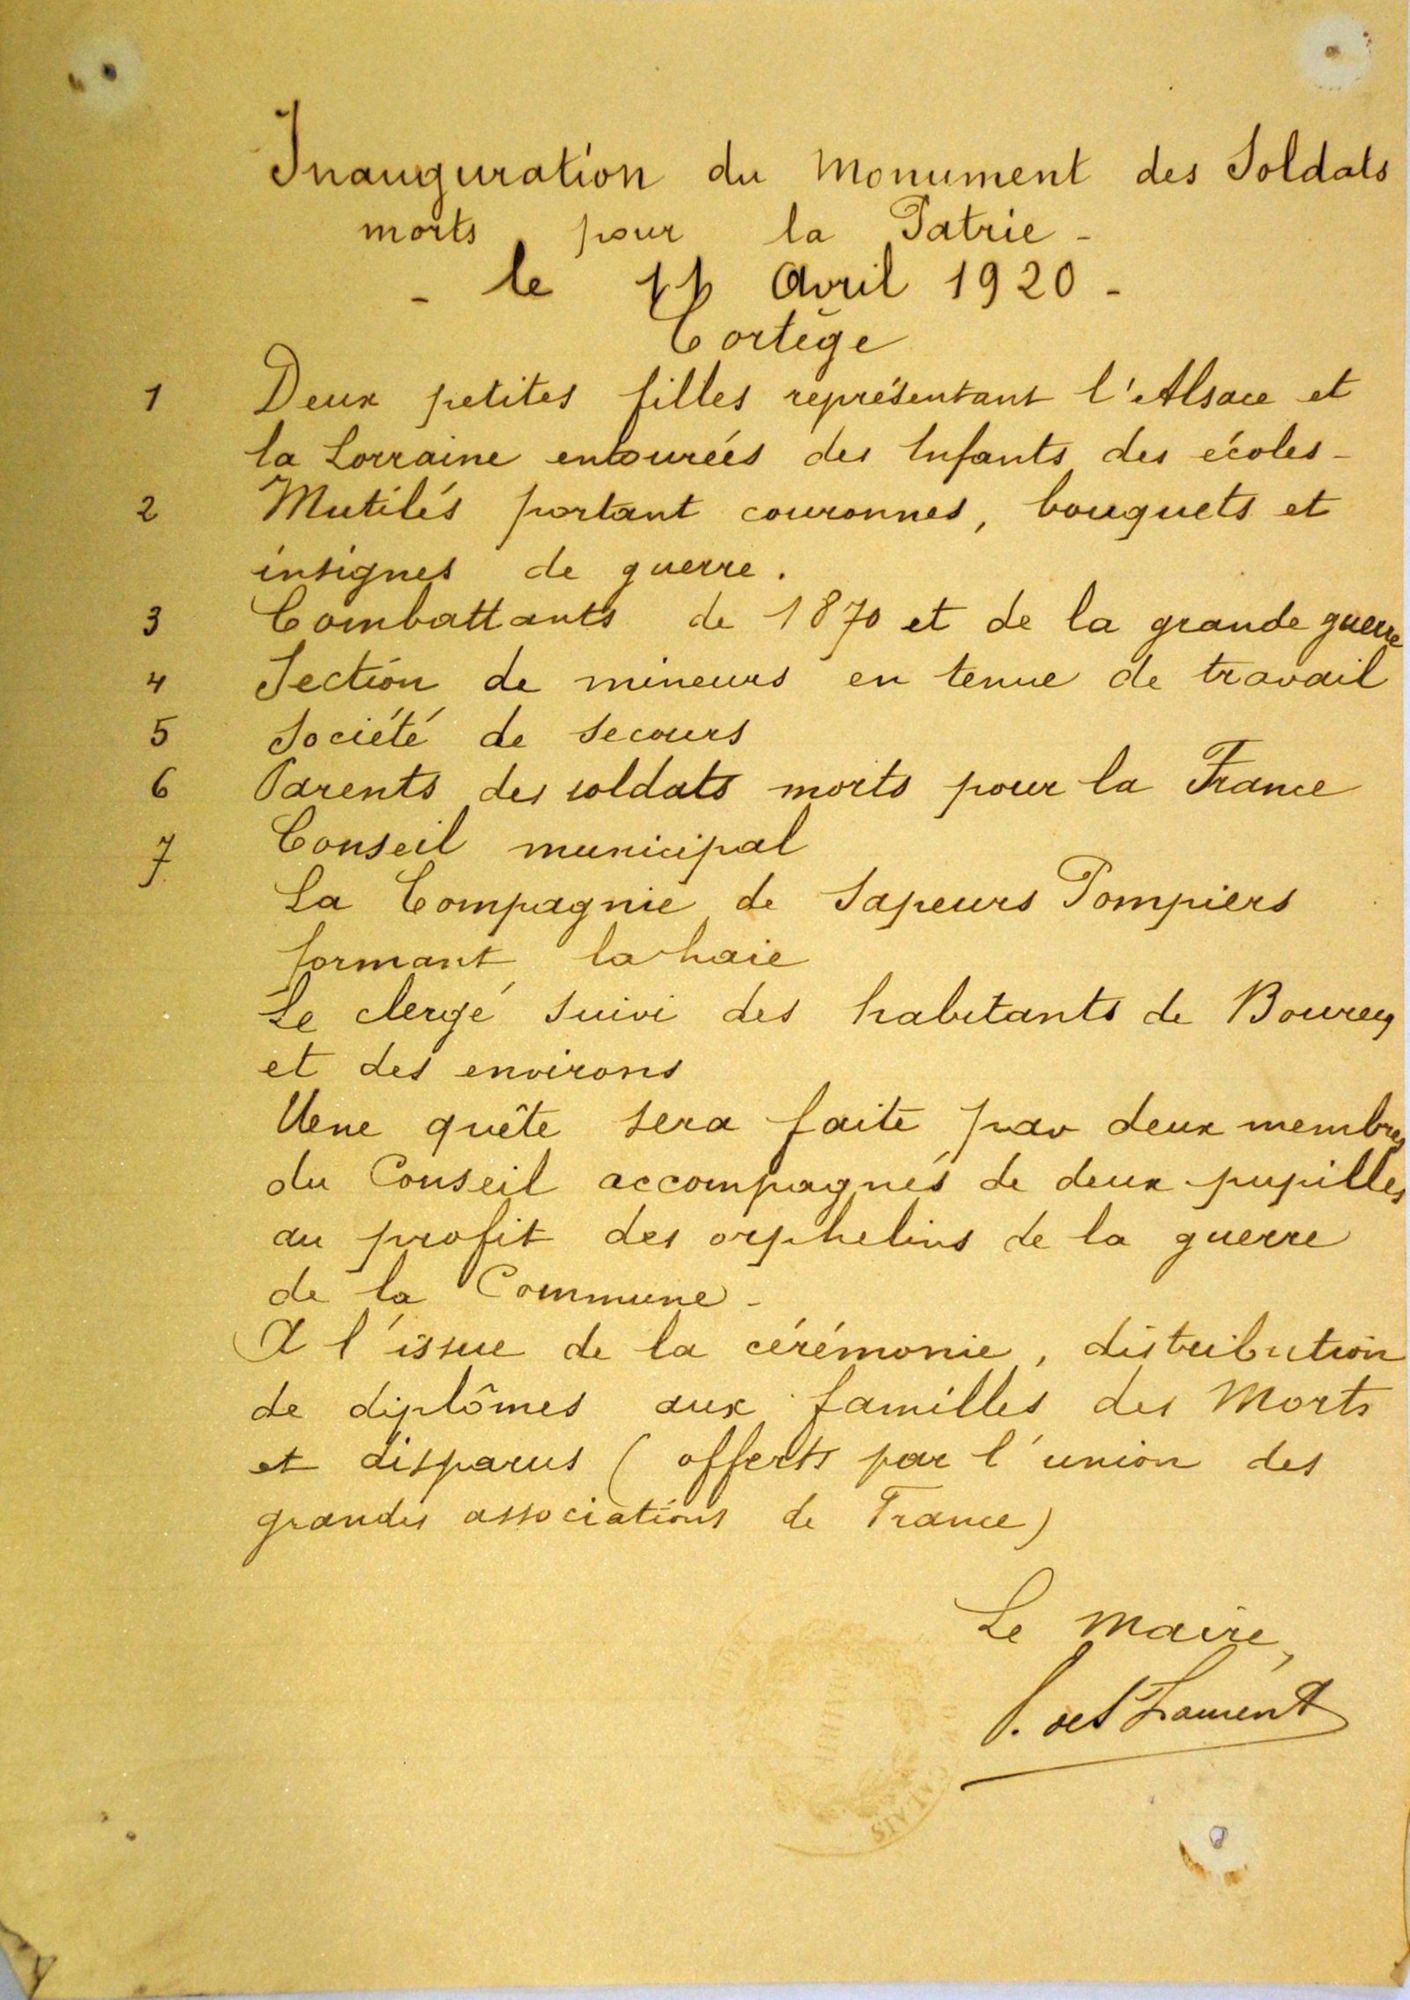 Inauguration du Monument des Soldats
morts pour la Patrie -
- le 11 Avril 1920 -
Cortège
1 Deux petites filles représentant l'Alsace et
la Lorraine entourées des Enfants des écoles -
2 Mutilés portant couronnes, bouquets et
insignes de guerre.
3 Combattants de 1870 et de la grande guerre
4 Section de mineurs en tenue de travail
5 Société de secours
6 Parents des soldats morts pour la France
7 Conseil municipal
La Compagnie de Sapeurs Pompiers
formant la haie
Le clergé suivi des habitants de Bourecq
et des environs
Une quête sera faite par deux membres
du Conseil accompagnés de deux pupilles
au profit des orphelins de la guerre
de la Commune -
A l'issue de la cérémonie, distribution
de diplômes aux familles des Morts
et disparus (offerts par l'union des
grandes associations de France)
Le Maire,
CALAIS